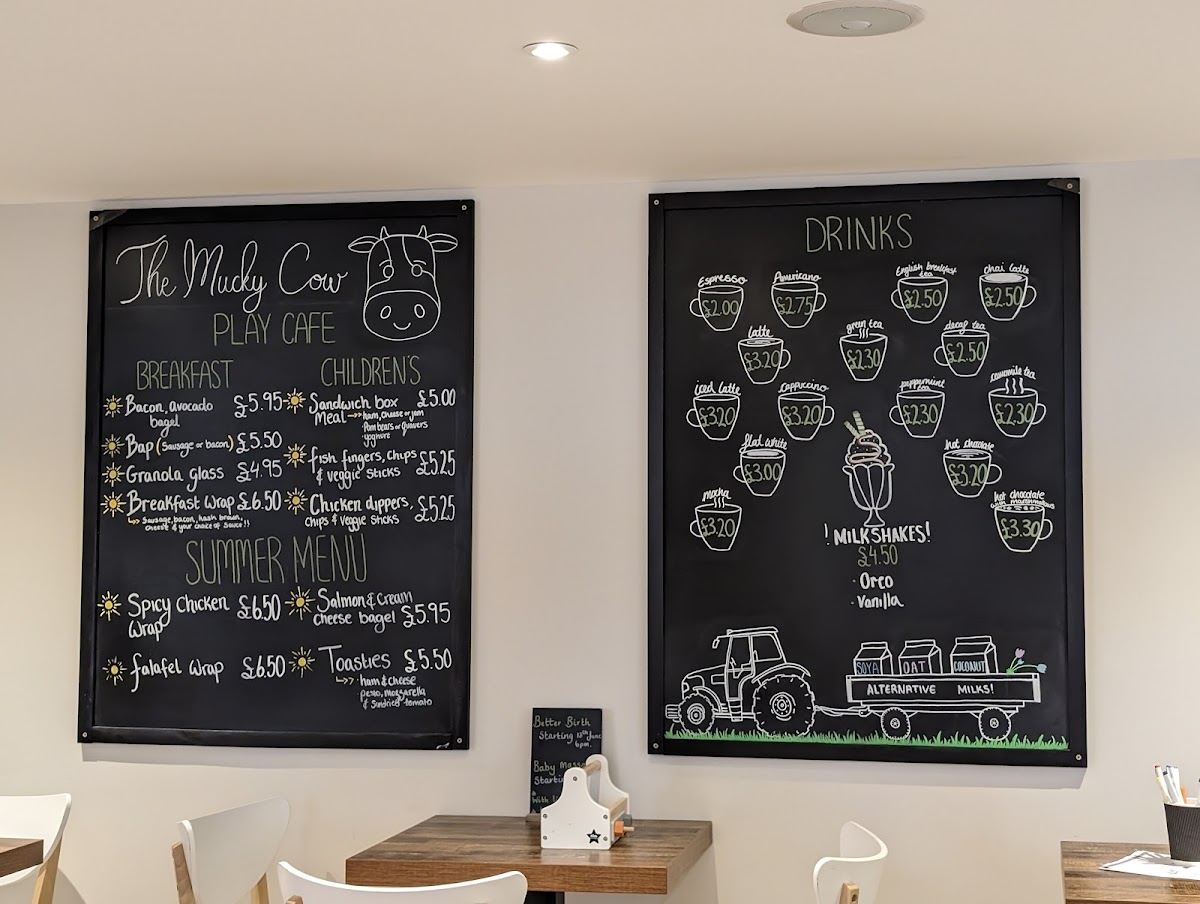 The Mucky Cow
PLAY CAFE
BREAKFAST
Bacon, avocado £5.95
bagel
Bap (Sausage or bacon) £5.50
Granola glass £4.95
Breakfast Wrap £6.50
Sausage, bacon, hash brown,
cheese & your choice of sauce!!
CHILDREN'S
Sandwich box £5.00
Meal ham, cheese or jam
Pom bears or quavers
yoghurt
fish fingers, chips £5.25
& veggie sticks
Chicken dippers, £5.25
chips & veggie sticks
SUMMER MENU
Spicy Chicken £6.50
Wrap
falafel wrap £6.50
Salmon & cream
cheese bagel £5.95
Toasties £5.50
· ham & cheese
pesto, mozzarella
& sundried tomato
DRINKS
Espresso
£2.00
Americano
£2.75
English breakfast
tea
£2.50
chai latte
£2.50
latte
£3.20
green tea
£2.30
decap tea
£2.50
iced latte
£3.20
Cappuccino
£3.20
peppermint
tea
£2.30
camomile tea
£2.30
flat white
£3.00
hot chocolate
£3.20
mocha
£3.20
hot chocolate
with marshmallows
£3.30
! MILKSHAKES!
£4.50
· Oreo
· Vanilla
SOYA
OAT
COCONUT
ALTERNATIVE MILKS!
Better Birth
Starting 13th June
6pm.
Baby
With